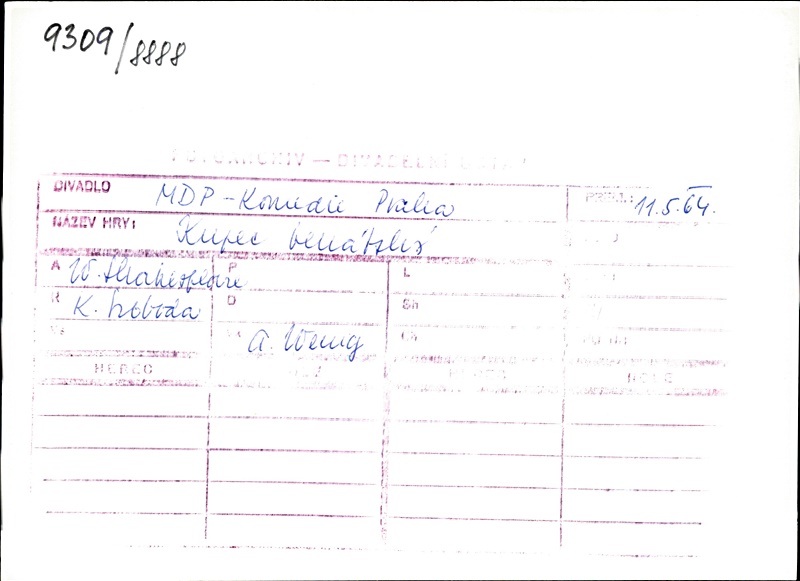 9309/8888
FOTOARCHIV — DIVADELNÍ
DIVADLO MDP - Komedie Praha PREM.: 11.5.64.
NÁZEV HRY: Kupec benátský
A W. Shakespeare P L
R K. Svoboda D Sh
A. Wenig Ch
HEREC